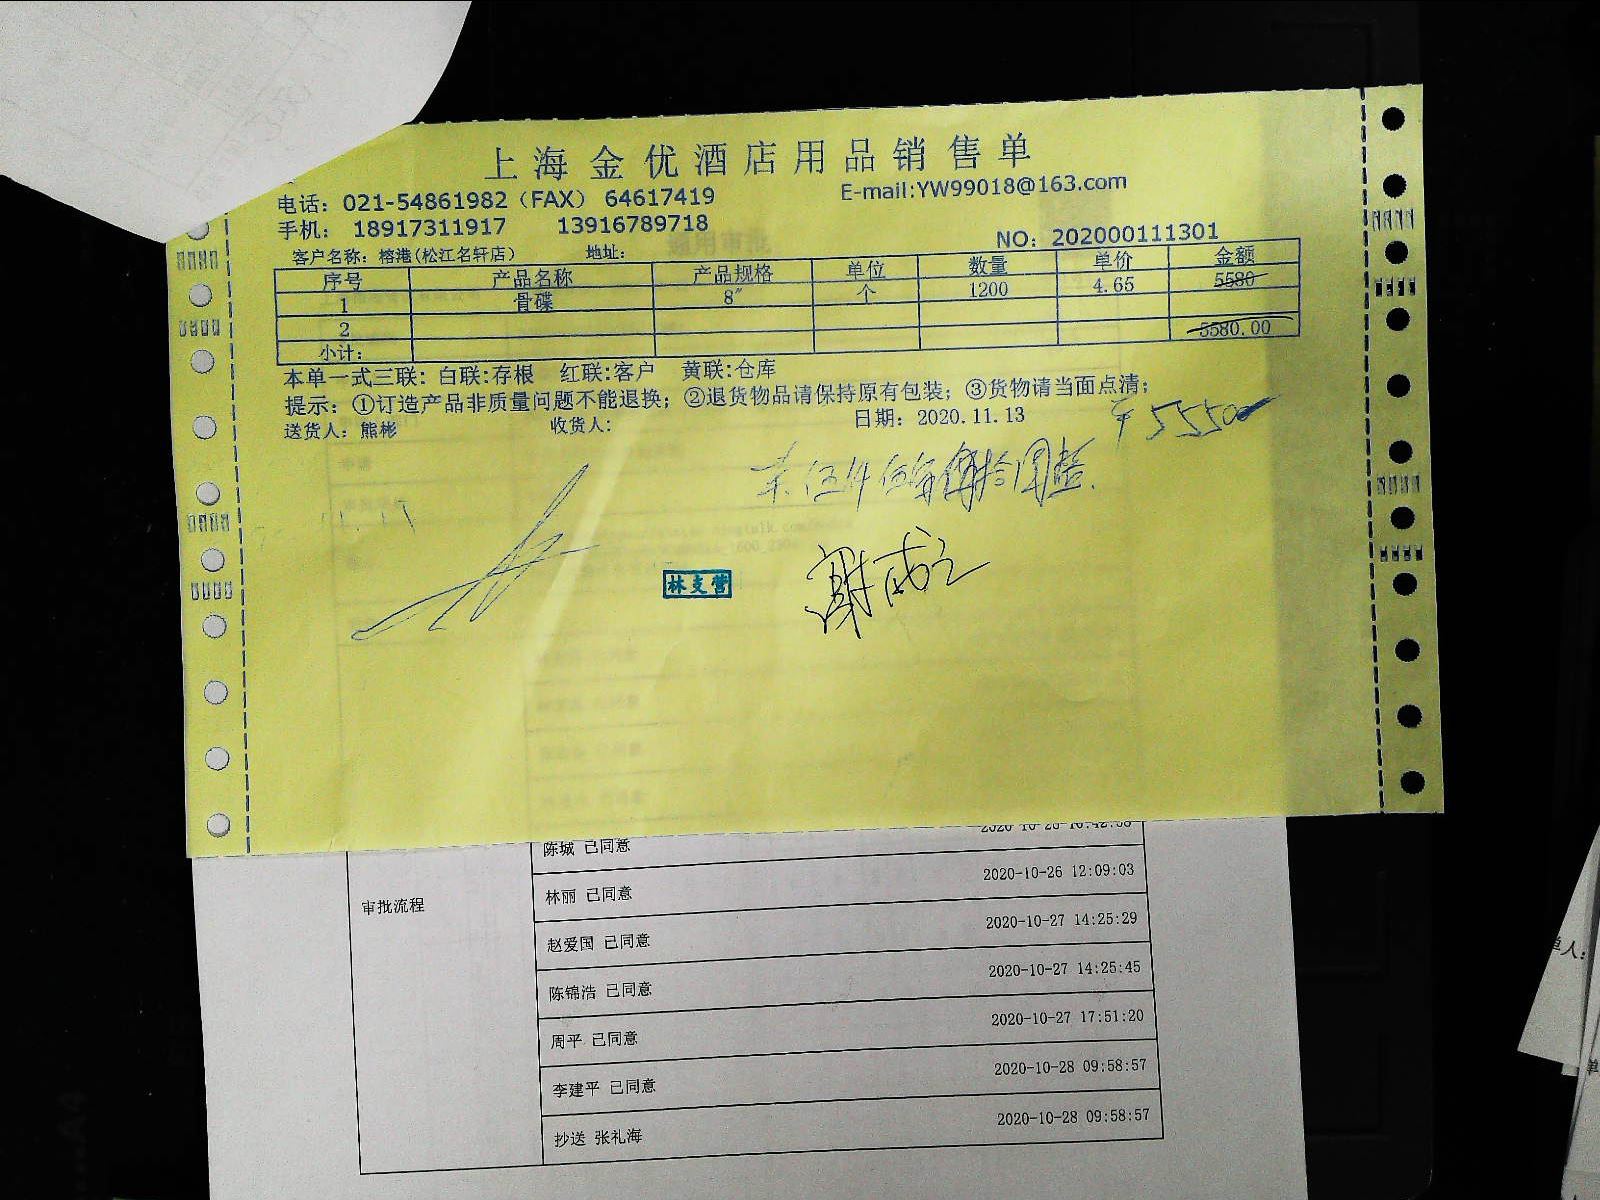 上海金优酒店用品销售单
电话：021-54861982（FAX）64617419 E-mail:YW99018@163.com
手机： 18917311917 13916789718
NO：202000111301
客户名称：榕港(松江名轩店) 地址：
序号 产品名称 产品规格 单位 数量 单价 金额
1 骨碟 8″ 个 1200 4.65 5580
2
小计： 5580.00
本单一式三联：白联:存根 红联:客户 黄联:仓库
提示：①订造产品非质量问题不能退换；②退货物品请保持原有包装；③货物请当面点清；
送货人：熊彬 收货人： 日期：2020.11.13
￥5550
伍仟伍佰伍拾圆整
林支营
陈城 已同意
林丽 已同意 2020-10-26 12:09:03
审批流程
赵爱国 已同意 2020-10-27 14:25:29
陈锦浩 已同意 2020-10-27 14:25:45
周平 已同意 2020-10-27 17:51:20
李建平 已同意 2020-10-28 09:58:57
抄送 张礼海 2020-10-28 09:58:57
单人：
单